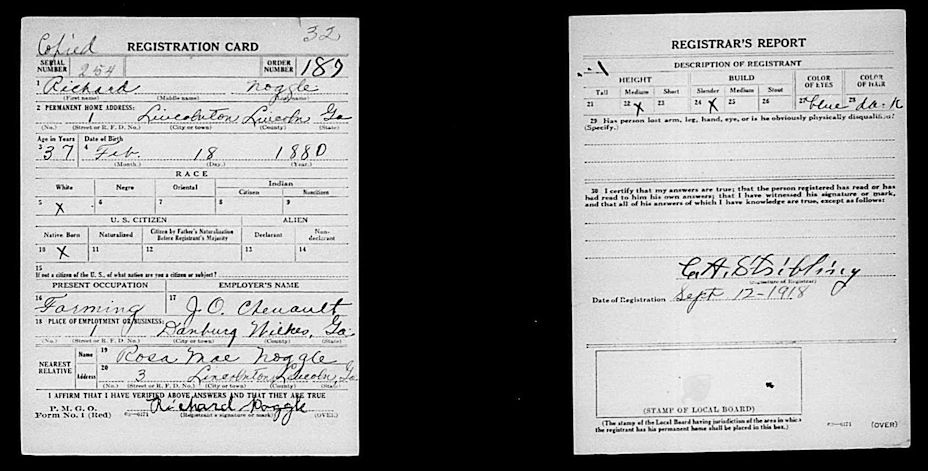 Copied
32
REGISTRATION CARD
SERIAL NUMBER 254 ORDER NUMBER 189
1 Richard Noggle
(First name) (Middle name) (Last name)
2 PERMANENT HOME ADDRESS:
1 Lincolnton Lincoln Ga
(No.) (Street or R. F. D. No.) (City or town) (County) (State)
Age in Years Date of Birth
3 37 4 Feb. 18 1880
(Month.) (Day.) (Year.)
RACE
White Negro Oriental Indian
Citizen Noncitizen
5 X 6 7 8 9
U. S. CITIZEN ALIEN
Native Born Naturalized Citizen by Father's Naturalization Before Registrant's Majority Declarant Non-declarant
10 X 11 12 13 14
15
If not a citizen of the U. S., of what nation are you a citizen or subject?
PRESENT OCCUPATION EMPLOYER'S NAME
16 Farming 17 J. O. Chenault
18 PLACE OF EMPLOYMENT OR BUSINESS:
1 Danburg Wilkes, Ga.
(No.) (Street or R. F. D. No.) (City or town) (County) (State)
NEAREST RELATIVE
Name 19 Rosa Mae Noggle
Address 20 3 Lincolnton, Lincoln, Ga
(No.) (Street or R. F. D. No.) (City or town) (County) (State)
I AFFIRM THAT I HAVE VERIFIED ABOVE ANSWERS AND THAT THEY ARE TRUE
P. M. G. O.
Form No. 1 (Red) Richard Noggle
(Registrant's signature or mark) (OVER)
REGISTRAR'S REPORT
DESCRIPTION OF REGISTRANT
HEIGHT BUILD COLOR OF EYES COLOR OF HAIR
Tall Medium Short Slender Medium Stout
21 22 X 23 24 X 25 26 27 blue 28 da. k
29 Has person lost arm, leg, hand, eye, or is he obviously physically disqualified?
(Specify.)
30 I certify that my answers are true; that the person registered has read or has
had read to him his own answers; that I have witnessed his signature or mark,
and that all of his answers of which I have knowledge are true, except as follows:
C. A. Stribling
(Signature of Registrar)
Date of Registration Sept 12-1918
(STAMP OF LOCAL BOARD)
(The stamp of the Local Board having jurisdiction of the area in which
the registrant has his permanent home shall be placed in this box.)
(OVER)